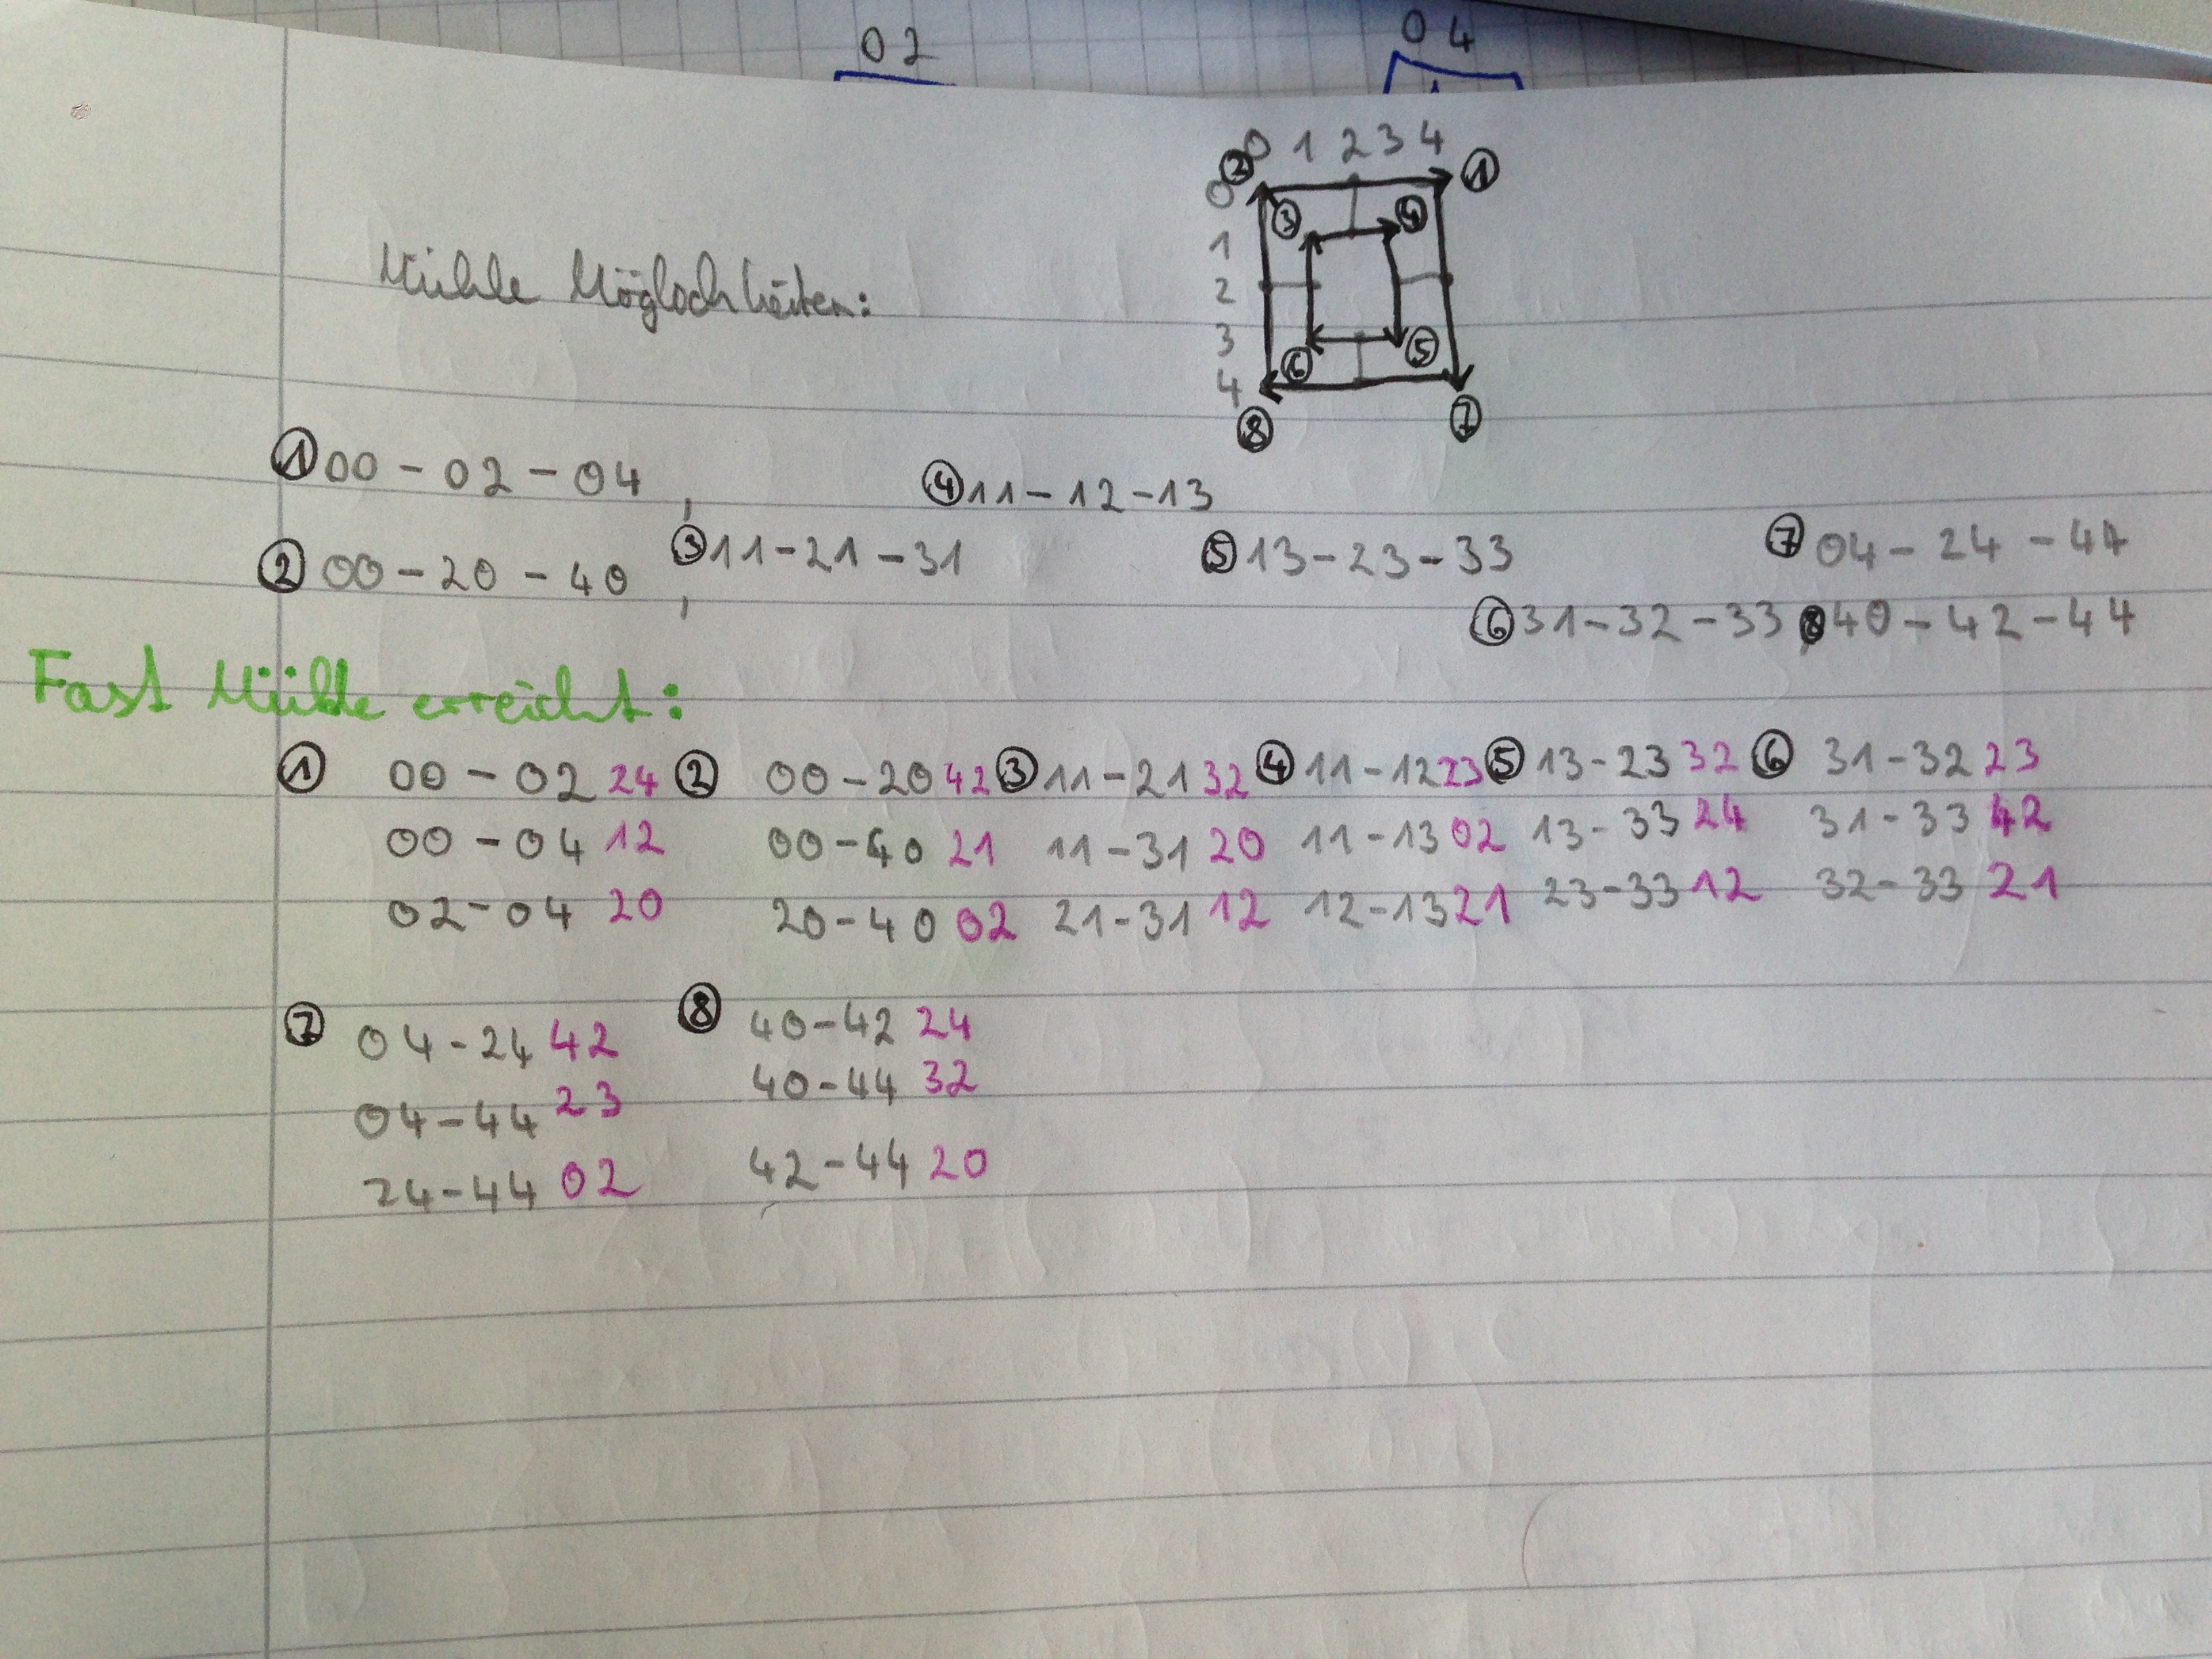 02 04
0 1 2 3 4
② ①
0
③ ④
1
Mühle Möglochkeiten:
2
3
⑥ ⑤
4
⑧ ⑦
① 00 - 02 - 04 , ④ 11 - 12 - 13
② 00 - 20 - 40 , ③ 11 - 21 - 31 ⑤ 13 - 23 - 33 ⑦ 04 - 24 - 44
⑥ 31 - 32 - 33 ⑧ 40 - 42 - 44
Fast Mühle erreicht:
① 00 - 02 24 ② 00 - 20 42 ③ 11 - 21 32 ④ 11 - 12 23 ⑤ 13 - 23 32 ⑥ 31 - 32 23
00 - 04 12 00 - 40 21 11 - 31 20 11 - 13 02 13 - 33 24 31 - 33 42
02 - 04 20 20 - 40 02 21 - 31 12 12 - 13 21 23 - 33 12 32 - 33 21
⑦ 04 - 24 42 ⑧ 40 - 42 24
04 - 44 23 40 - 44 32
24 - 44 02 42 - 44 20